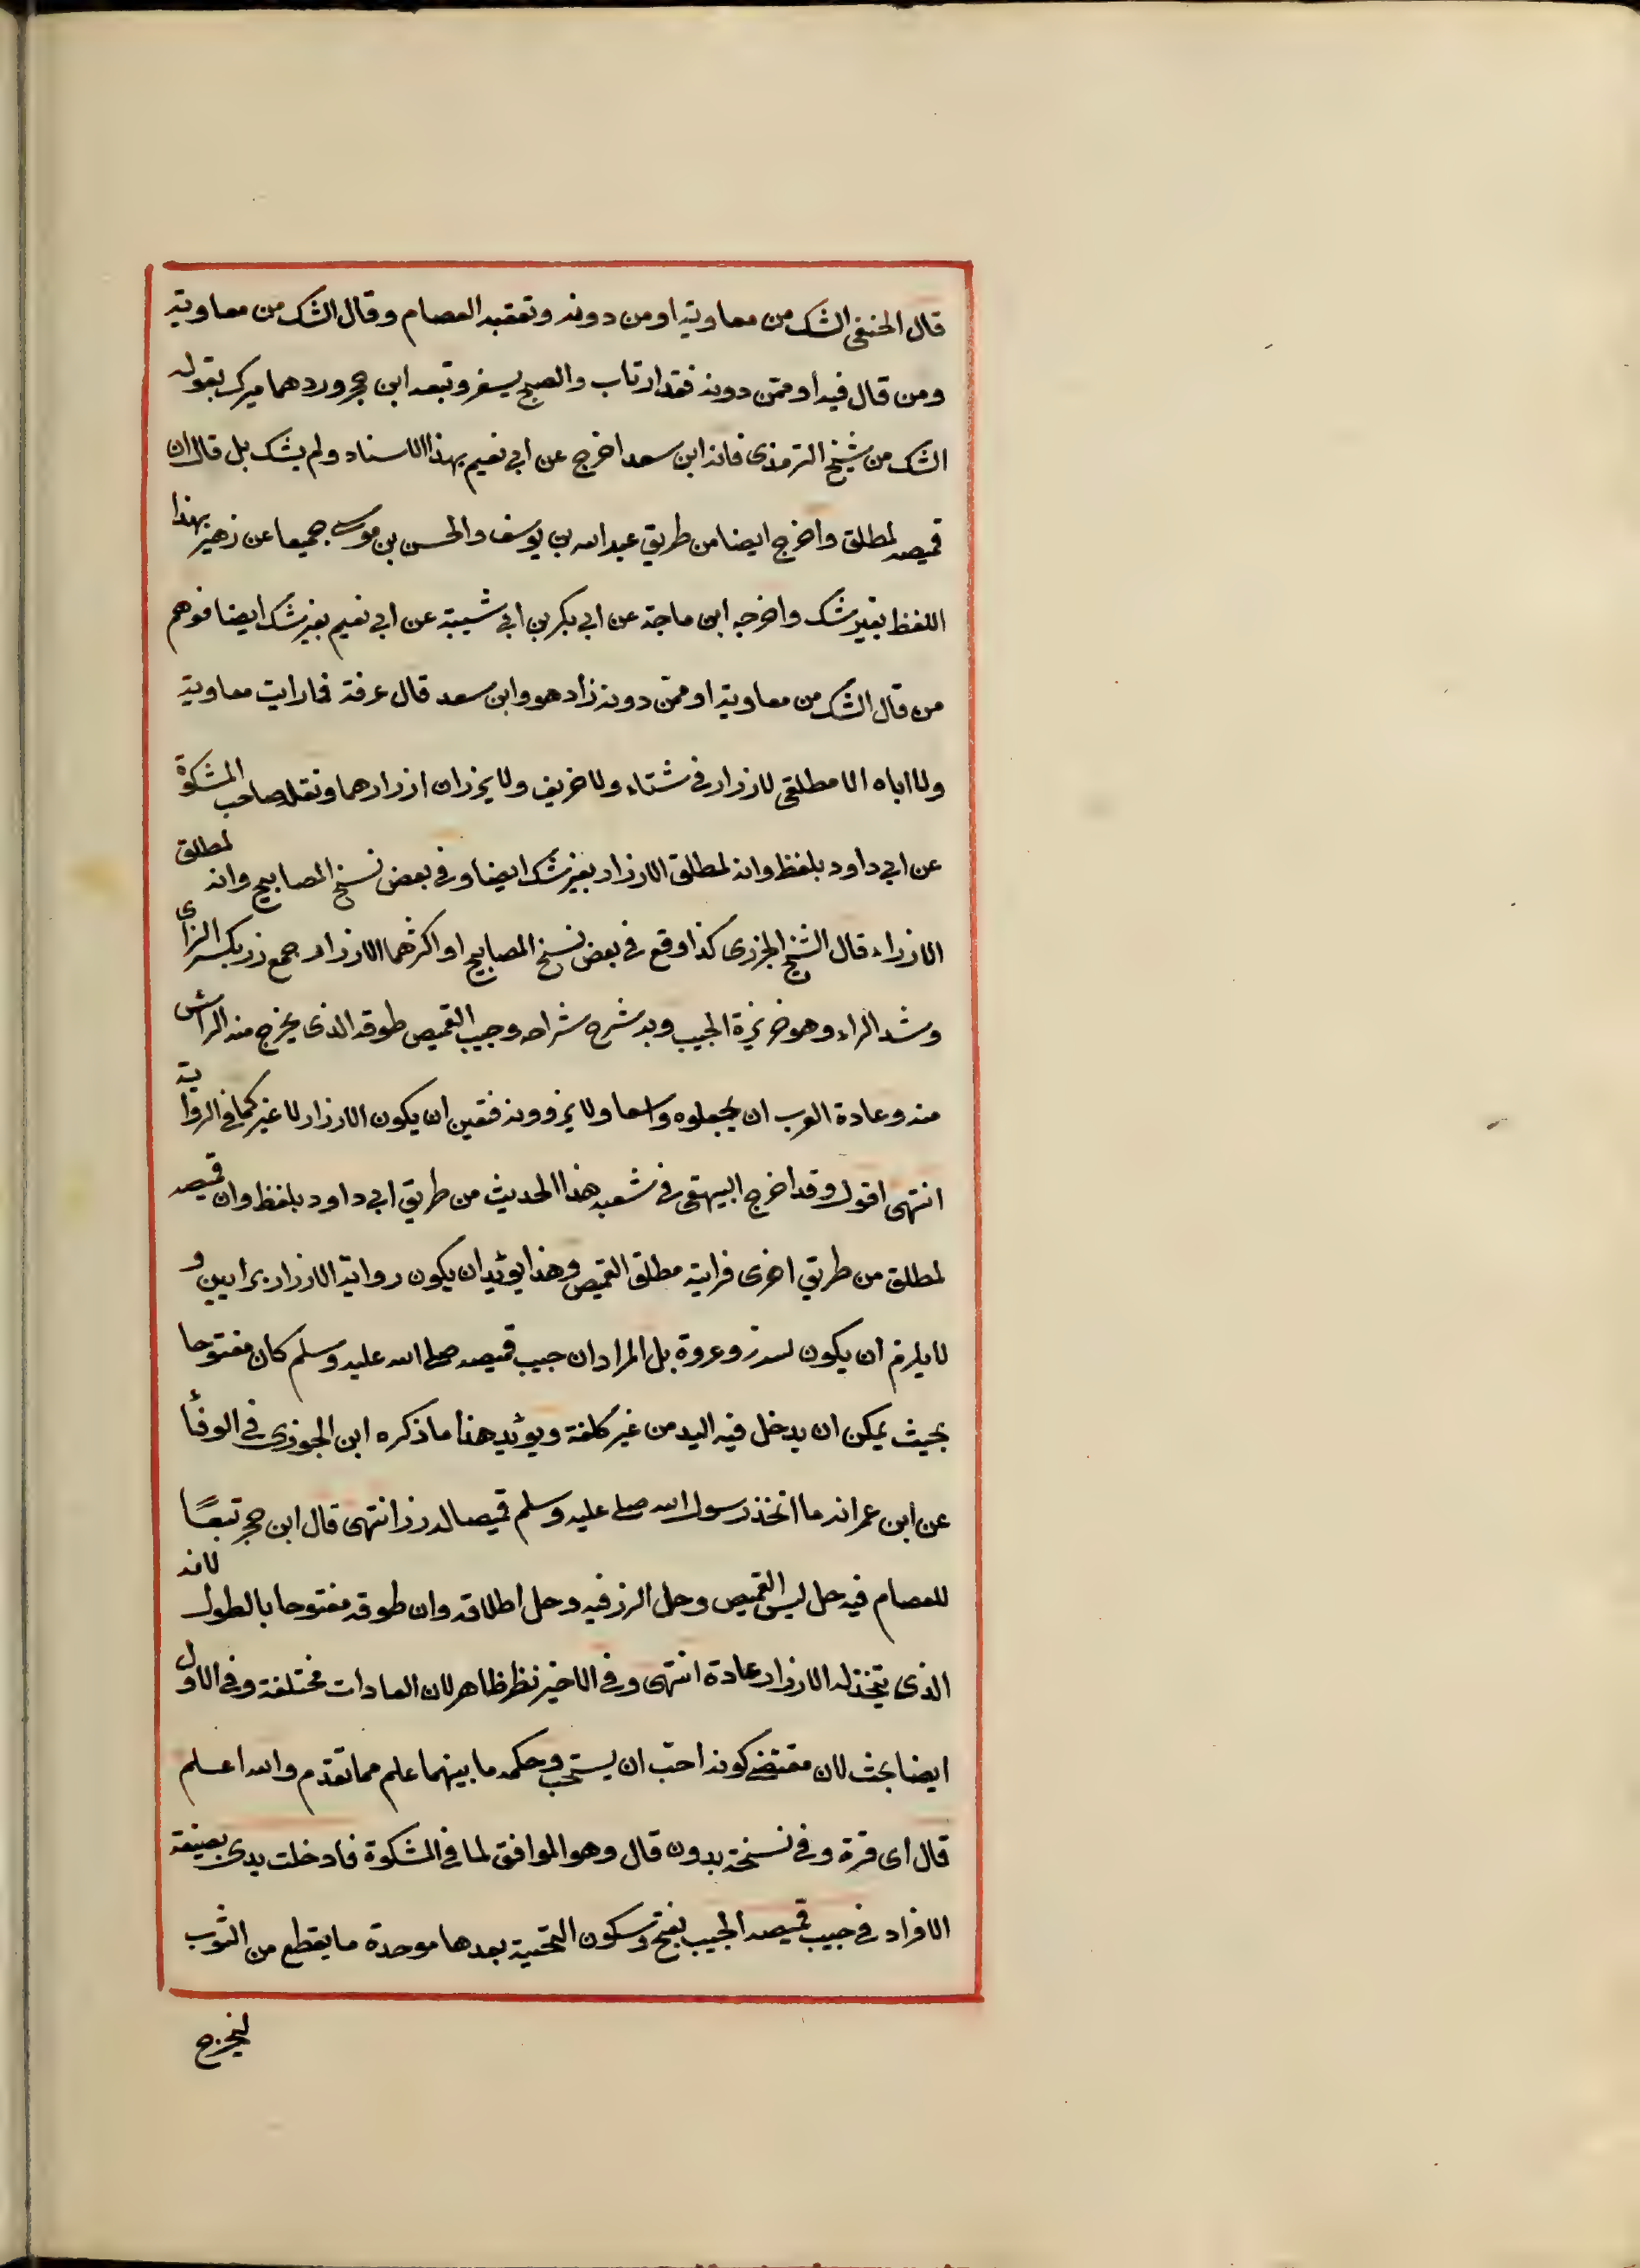 قال الحنفى الشك من معاوية او من دونه وتعقبه العصام وقال الشك من معاوية
ومن قال فيه او ممن دونه فقد ارتاب والصبح يسفر وتبعه ابن حجر وردهما ميرك بقوله
الشك من شيخ الترمذى فانه ابن سعد اخرج عن ابي نعيم بهذا الاسناد ولم يشك بل قال ان
قميصه لمطلق واخرج ايضا من طريق عبد الله بن يوسف والحسن بن موسى جميعا عن زهير بهذا
اللفظ بغير شك واخرجه ابن ماجة عن ابي بكر بن ابي شيبة عن ابي نعيم بغير شك ايضا فوهم
من قال الشك من معاوية او ممن دونه زاد هو وابن سعد قال عرفة فما رايت معاوية
ولا اباه الا مطلقى لازرار فى شتاء ولا خريف ولا يزران ازرارهما ونقله صاحب المشكوة
عن ابي داود بلفظ وانه لمطلق الازرار بغير شك ايضا وفى بعض نسخ المصابيح وانه لمطلق
الازراء قال الشيخ الجزرى كذا وقع فى بعض نسخ المصابيح او اكثرهما الازرار جمع زر بكسر الزاى
وشد الراء وهو خريزة الجيب وبه شرح شراحه وجيب القميص طوقه الذى يخرج منه الراس
منه وعادة العرب ان يجعلوه واسعا ولا يزرونه فتعين ان يكون الازرار لا غير كما فى الرواية
انتهى اقول وقد اخرج البيهقى فى شعبه هذا الحديث من طريق ابي داود بلفظ وان قميصه
لمطلق من طريق اخرى فرايته مطلق القميص وهذا يؤيد ان يكون رواية الازرار برايين و
لا يلزم ان يكون له زر وعروة بل المراد ان جيب قميصه صلى الله عليه وسلم كان مفتوحا
بحيث يمكن ان يدخل فيه اليد من غير كلفة ويؤيد هذا ما ذكره ابن الجوزى فى الوفا
عن ابن عمر انه ما اتخذ رسول الله صلى عليه وسلم قميصا له زر انتهى قال ابن حجر تبعًا
للعصام فيه حل لبس القميص وحل الزر فيه وحل اطلاقه وان طوقه مفتوحا بالطول لانه
الذى يتخذ له الازرار عادة انتهى وفى الاخير نظر ظاهر لان العادات مختلفة وفى الاول
ايضا بحث لان مقتضى كونه احب ان يستحب وحكمه ما بينهما علم مما تقدم والله اعلم
قال اى قرة وفى نسخة بدون قال وهو الموافق لما فى المشكوة فادخلت يدى بصيغة
الافراد فى جيب قميصه الجيب بفتح وسكون التحتية بعدها موحدة ما يقطع من الثوب
ليخرج